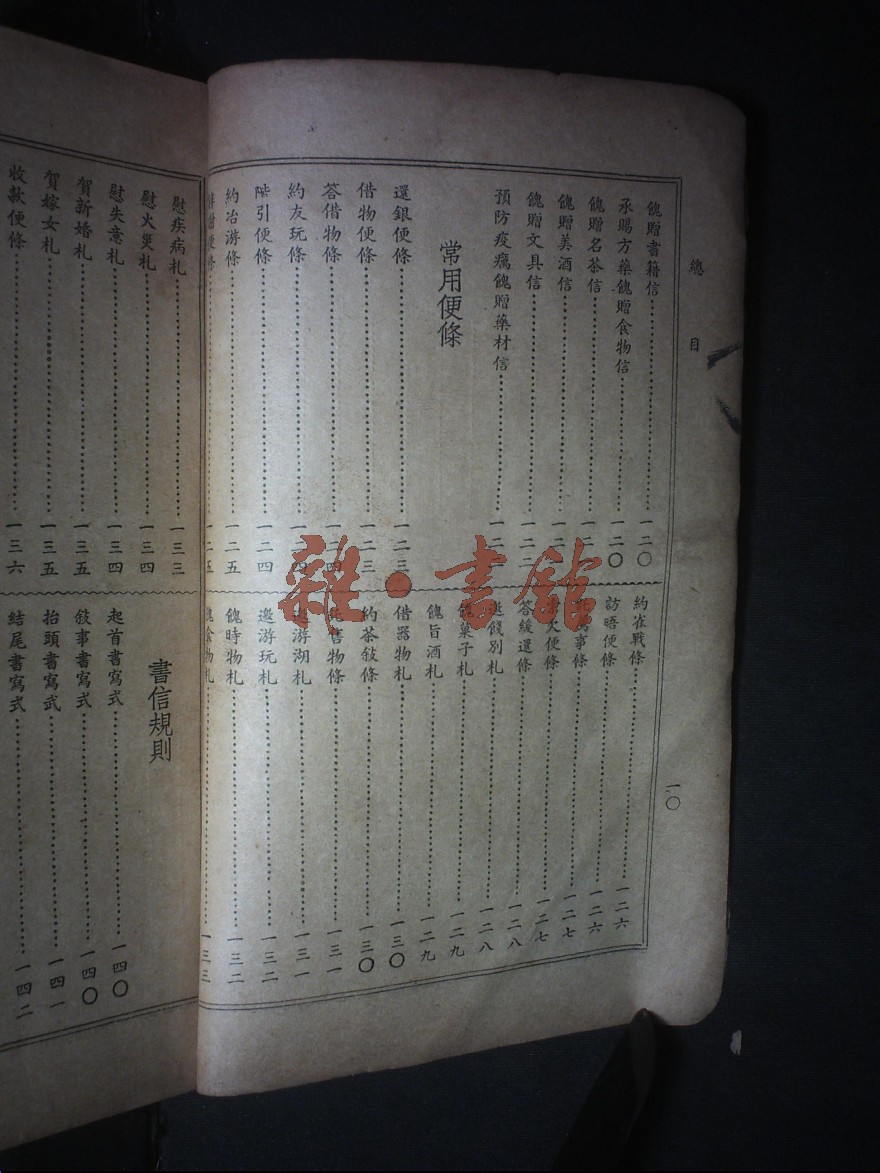 總目
餽贈書籍信 一二〇
承賜方藥餽贈食物信 一二〇
餽贈名茶信 一二
餽贈美酒信 一二
餽贈文具信 一二二
預防疫癘餽贈藥材信 一二
常用便條
還銀便條 一二三
借物便條 一二三
答借物條 二四
約友玩條 二四
階引便條 一二四
約冶游條 一二五
便條 二五
約雀戰條 一二六
訪晤便條 一二六
事條 一二七
便條 一二七
答緩還條 一二八
餞別札 一二八
餽菓子札 一二九
餽旨酒札 一二九
借器物札 一三〇
約茶敍條 一三〇
物條 一三一
邀游湖札 一三一
邀游玩札 一三二
餽時物札 一三二
餽食物札 一三三
一〇
慰疾病札 一三三
慰火災札 一三四
慰失意札 一三四
賀新婚札 一三五
賀嫁女札 一三五
收款便條 一三六
書信規則
起首書寫式 一四〇
敍事書寫式 一四〇
抬頭書寫式 一四一
結尾書寫式 一四二
雜·書館